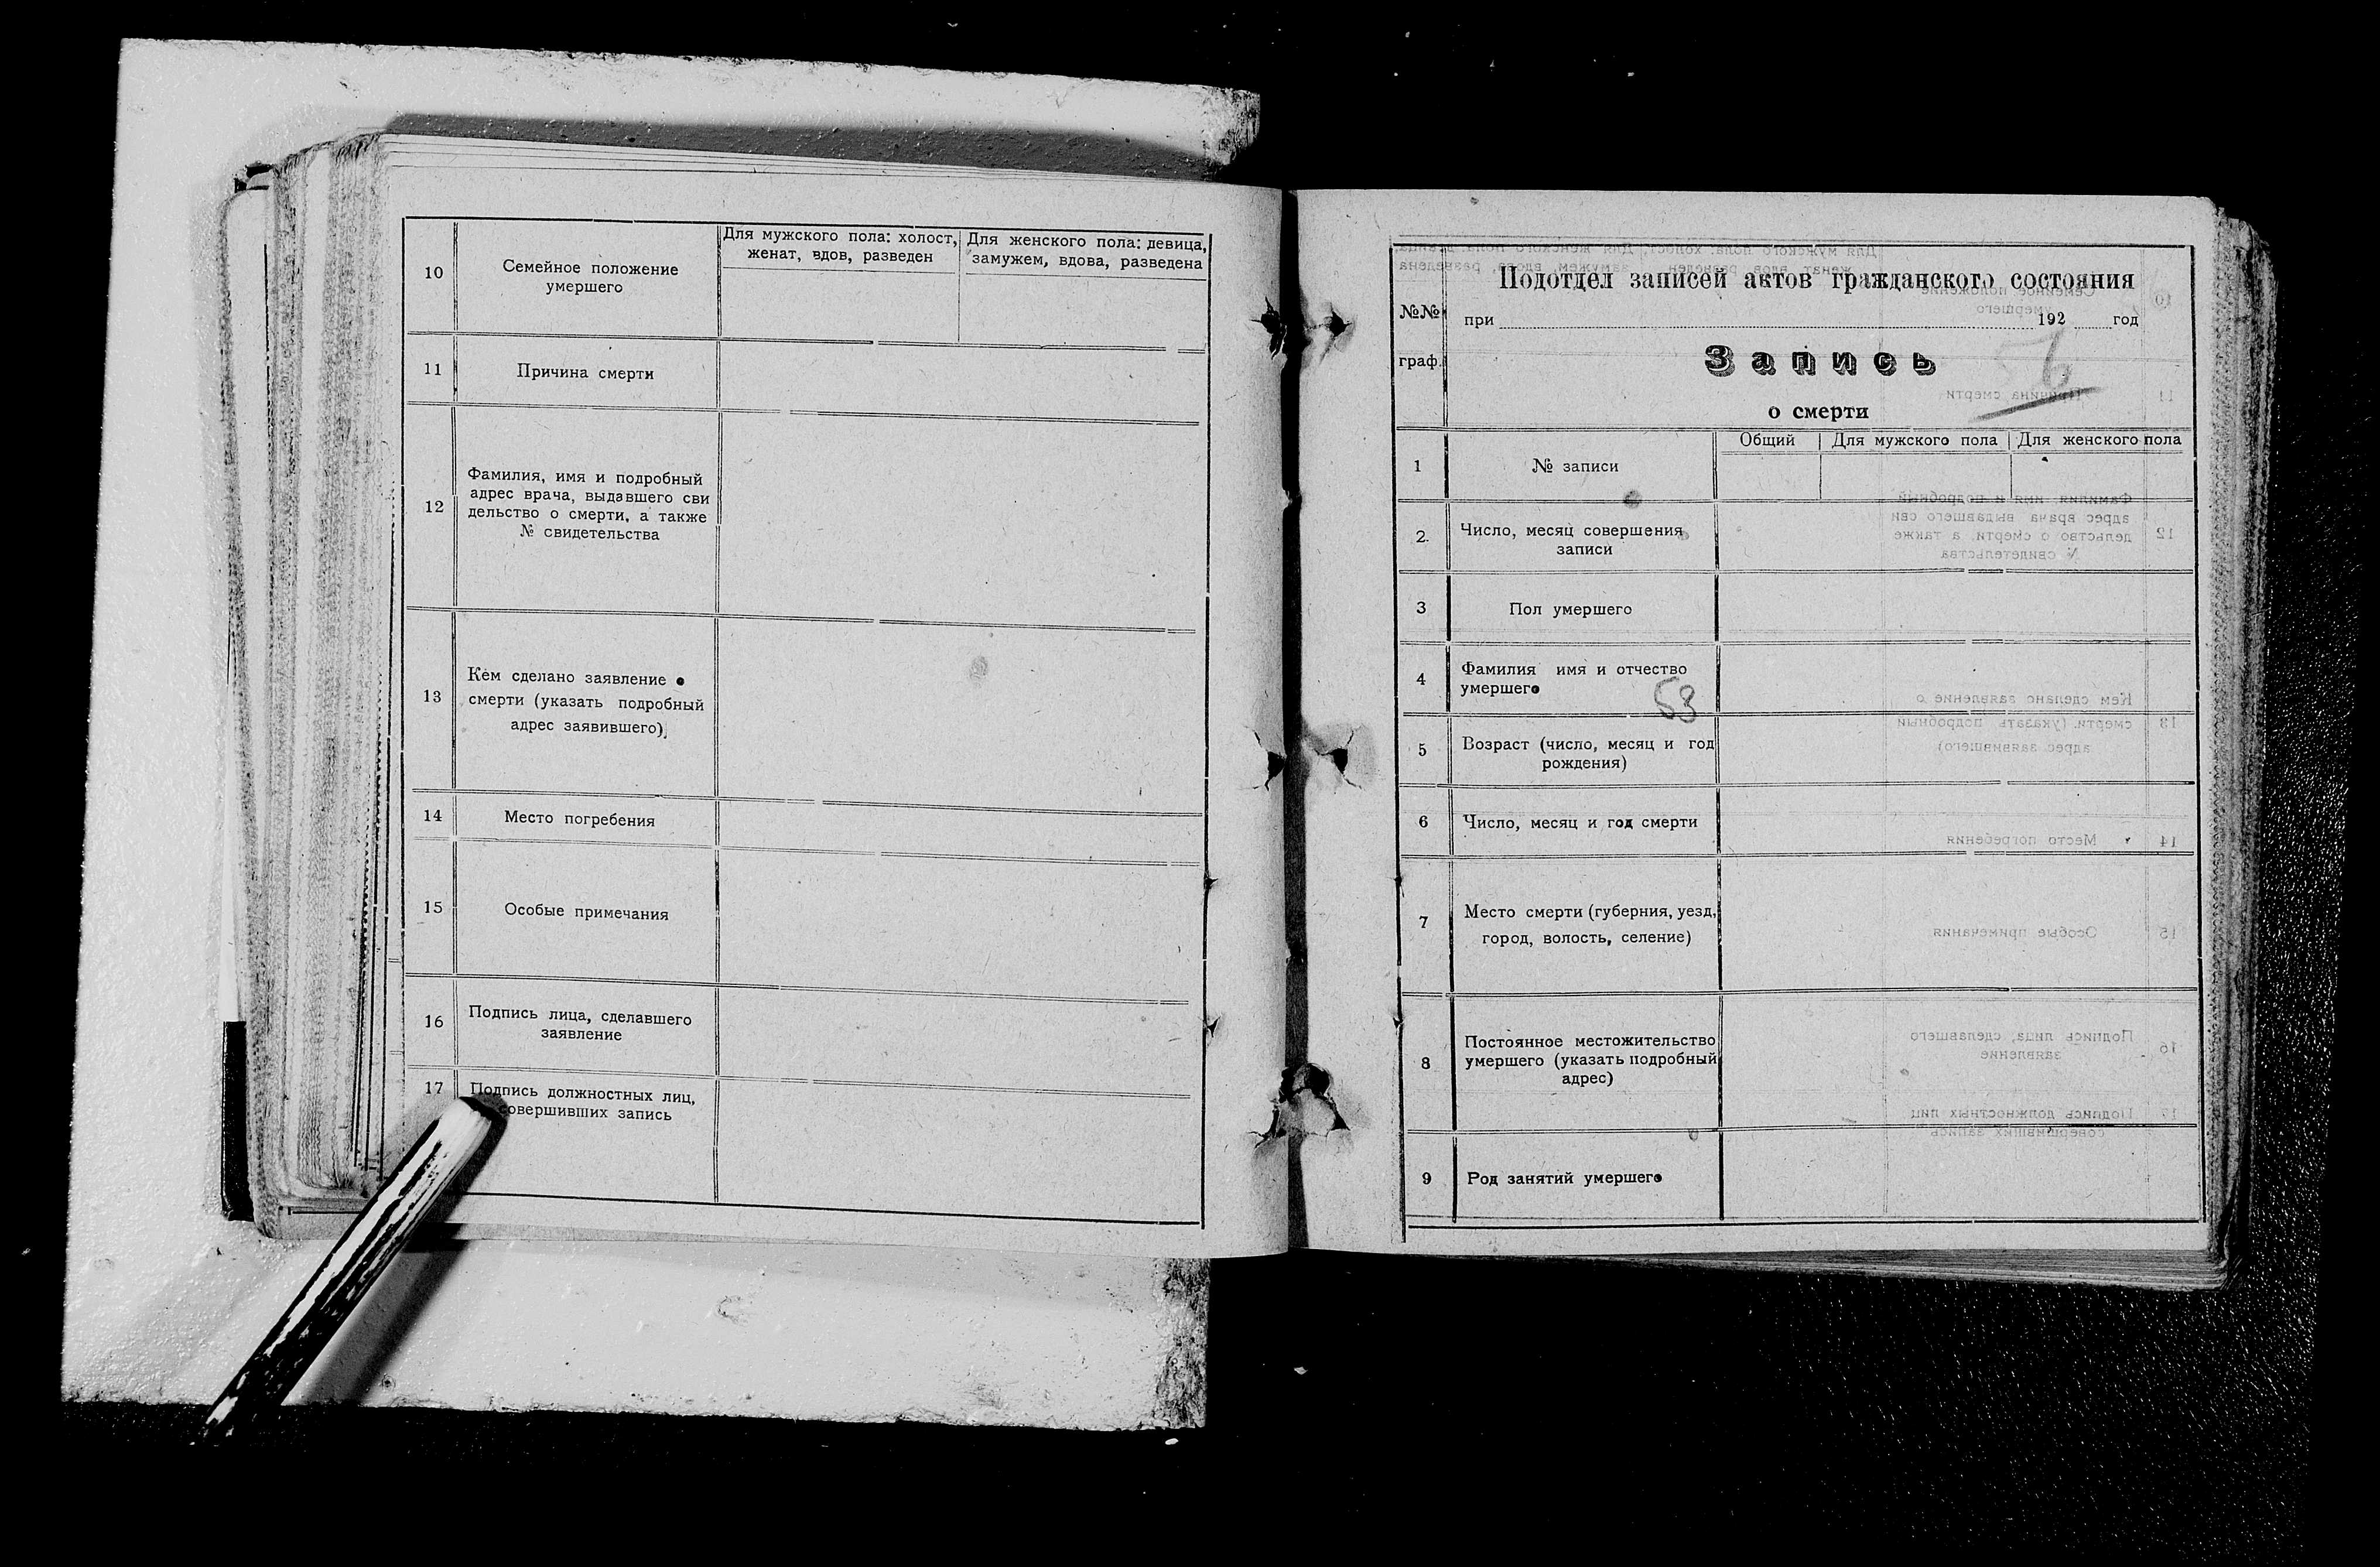 10
Семейное положение
умершего
Для мужского пола: холост,
женат, вдов, разведен
Для женского пола: девица,
замужем, вдова, разведена
11
Причина смерти
12
Фамилия, имя и подробный
адрес врача, выдавшего сви
дельство о смерти, а также
№ свидетельства
13
Кем сделано заявление о
смерти (указать подробный
адрес заявившего)
14
Место погребения
15
Особые примечания
16
Подпись лица, сделавшего
заявление
17
Подпись должностных лиц,
совершивших запись
№№
граф.
Подотдел записей актов гражданского состояния
при 192 год
Запись
о смерти
1
№ записи
Общий
Для мужского пола
Для женского пола
2.
Число, месяц совершения
записи
3
Пол умершего
4
Фамилия имя и отчество
умершего
53
5
Возраст (число, месяц и год
рождения)
6
Число, месяц и год смерти
7
Место смерти (губерния, уезд,
город, волость, селение)
8
Постоянное местожительство
умершего (указать подробный
адрес)
9
Род занятий умершего